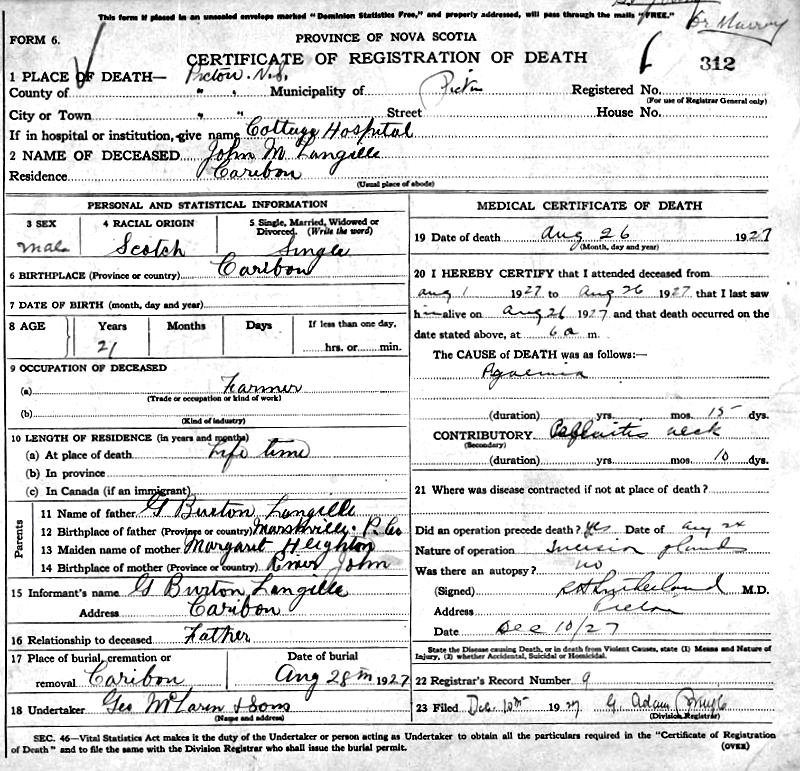 This form if placed in an unsealed envelope marked "Dominion Statistics Free," and properly addressed, will pass through the mails "FREE." Dr Murray
FORM 6. PROVINCE OF NOVA SCOTIA
CERTIFICATE OF REGISTRATION OF DEATH 312
1 PLACE OF DEATH— Pictou N.S.
County of " " Municipality of Pictou Registered No.
(For use of Registrar General only)
City or Town " " Street House No.
If in hospital or institution, give name Cottage Hospital
2 NAME OF DECEASED John M Langille
Residence Caribou
(Usual place of abode)
PERSONAL AND STATISTICAL INFORMATION
3 SEX 4 RACIAL ORIGIN 5 Single, Married, Widowed or Divorced. (Write the word)
male Scotch Single
6 BIRTHPLACE (Province or country) Caribou
7 DATE OF BIRTH (month, day and year)
8 AGE Years Months Days If less than one day,
21 hrs. or min.
9 OCCUPATION OF DECEASED
(a) Farmer
(Trade or occupation or kind of work)
(b)
(Kind of industry)
10 LENGTH OF RESIDENCE (in years and months)
(a) At place of death Life time
(b) In province
(c) In Canada (if an immigrant)
Parents
11 Name of father G Burton Langille
12 Birthplace of father (Province or country) Marshville P. Co
13 Maiden name of mother Margaret Heighton
14 Birthplace of mother (Province or country) River John
15 Informant's name G Burton Langille
Address Caribou
16 Relationship to deceased Father
17 Place of burial, cremation or removal Caribou Date of burial Aug 28th 1927
18 Undertaker Geo McLaren & Sons
(Name and address)
MEDICAL CERTIFICATE OF DEATH
19 Date of death Aug 26 1927
(Month, day and year)
20 I HEREBY CERTIFY that I attended deceased from
Aug 1 1927 to Aug 26 1927 that I last saw
him alive on Aug 26 1927 and that death occurred on the
date stated above, at 6 a m.
The CAUSE of DEATH was as follows:—
Pyaemia
(duration) yrs. mos. 15 dys.
CONTRIBUTORY Cellulitis neck
(Secondary)
(duration) yrs. mos. 10 dys.
21 Where was disease contracted if not at place of death?
Did an operation precede death? Yes Date of Aug
Nature of operation Incision glands
Was there an autopsy? no
(Signed) Sutherland M.D.
Address Pictou
Date Dec 10/27
State the Disease causing Death, or in death from Violent Causes, state (1) Means and Nature of
Injury, (2) whether Accidental, Suicidal or Homicidal.
22 Registrar's Record Number 9
23 Filed Dec. 10th 1927 G. Adam
(Division Registrar)
SEC. 46—Vital Statistics Act makes it the duty of the Undertaker or person acting as Undertaker to obtain all the particulars required in the "Certificate of Registration
of Death" and to file the same with the Division Registrar who shall issue the burial permit. (OVER)